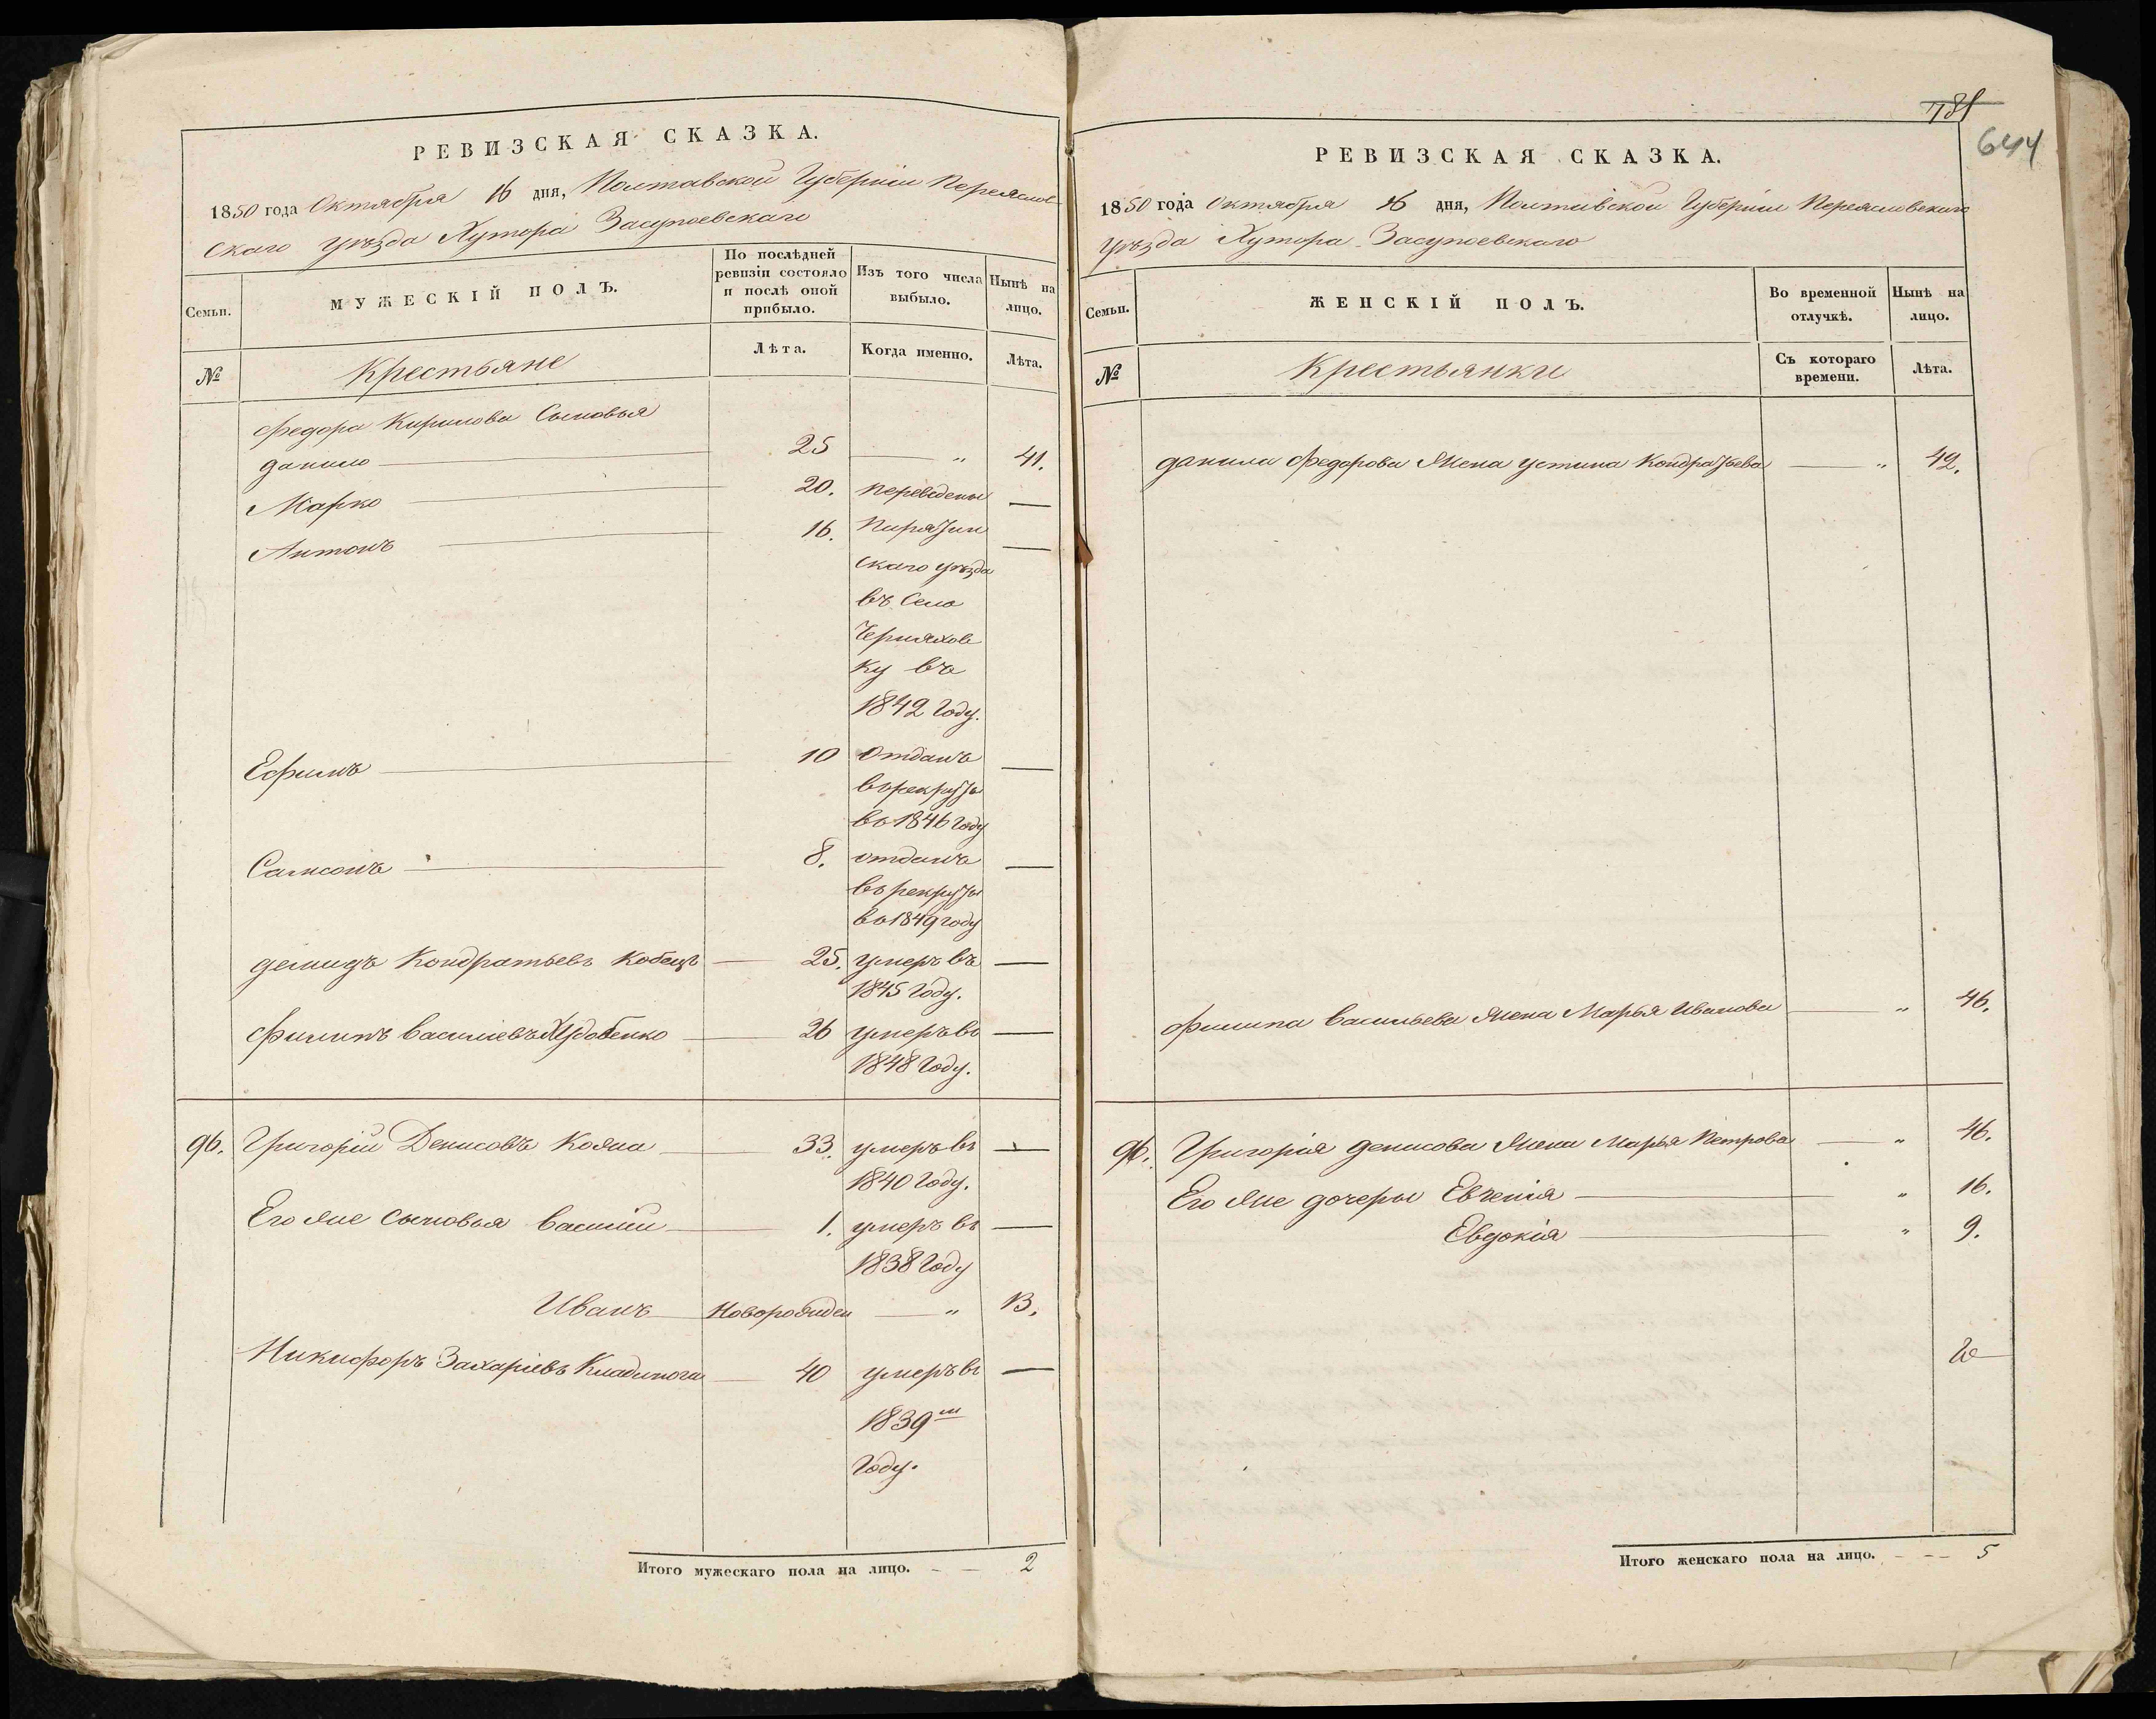 РЕВИЗСКАЯ СКАЗКА.
1850 года Октября 16 дня, Полтавской Губерніи Переяслов
скаго уѣзда Хутора Засупоевскаго
Семьи.
МУЖЕСКІЙ ПОЛЪ.
По послѣдней ревизіи состояло и послѣ оной прибыло.
Изъ того числа выбыло.
Нынѣ на лицо.
№
Крестьяне
Лѣта.
Когда именно.
Лѣта.
Федора Кирилова Сыновья
данило 25 — „ 41.
Марко 20. переведены —
Антонъ 16. Пирятин —
скаго уѣзда
въ Село
Черняхов
ку въ
1842 году.
Ефимъ 10 Отданъ —
въ рекруты
въ 1846 году
Самсонъ 8. отданъ —
въ рекруты
въ 1849 году
демидъ Кондратьевъ Кобецъ 25. умеръ въ —
1845 году.
Филипъ Василіевъ Худобенко 26 умеръ въ —
1848 году.
96. Григорій Денисовъ Кояна 33. умеръ въ —
1840 году.
Его же Сыновья Василій 1. умеръ въ —
1838 году
Иванъ Новорожден — „ 13.
Никифоръ Захаріевъ 40 умеръ въ —
1839 м
году.
Итого мужескаго пола на лицо. — — 2
781
644
РЕВИЗСКАЯ СКАЗКА.
1850 года Октября 16 дня, Полтавской Губерніи Переясловскаго
уѣзда Хутора Засупоевскаго
Семьи.
ЖЕНСКІЙ ПОЛЪ.
Во временной отлучкѣ.
Нынѣ на лицо.
№
Крестьянки
Съ котораго времени.
Лѣта.
данила Федорова Жена устина Кондратьева — „ 42.
Филипа Васильева Жена Марья Иванова — „ 46.
96. Григорія денисова Жена Марья Петрова — „ 46.
Его же дочери Евгенія „ 16.
Евдокія „ 9.
Итого женскаго пола на лицо. — — 5